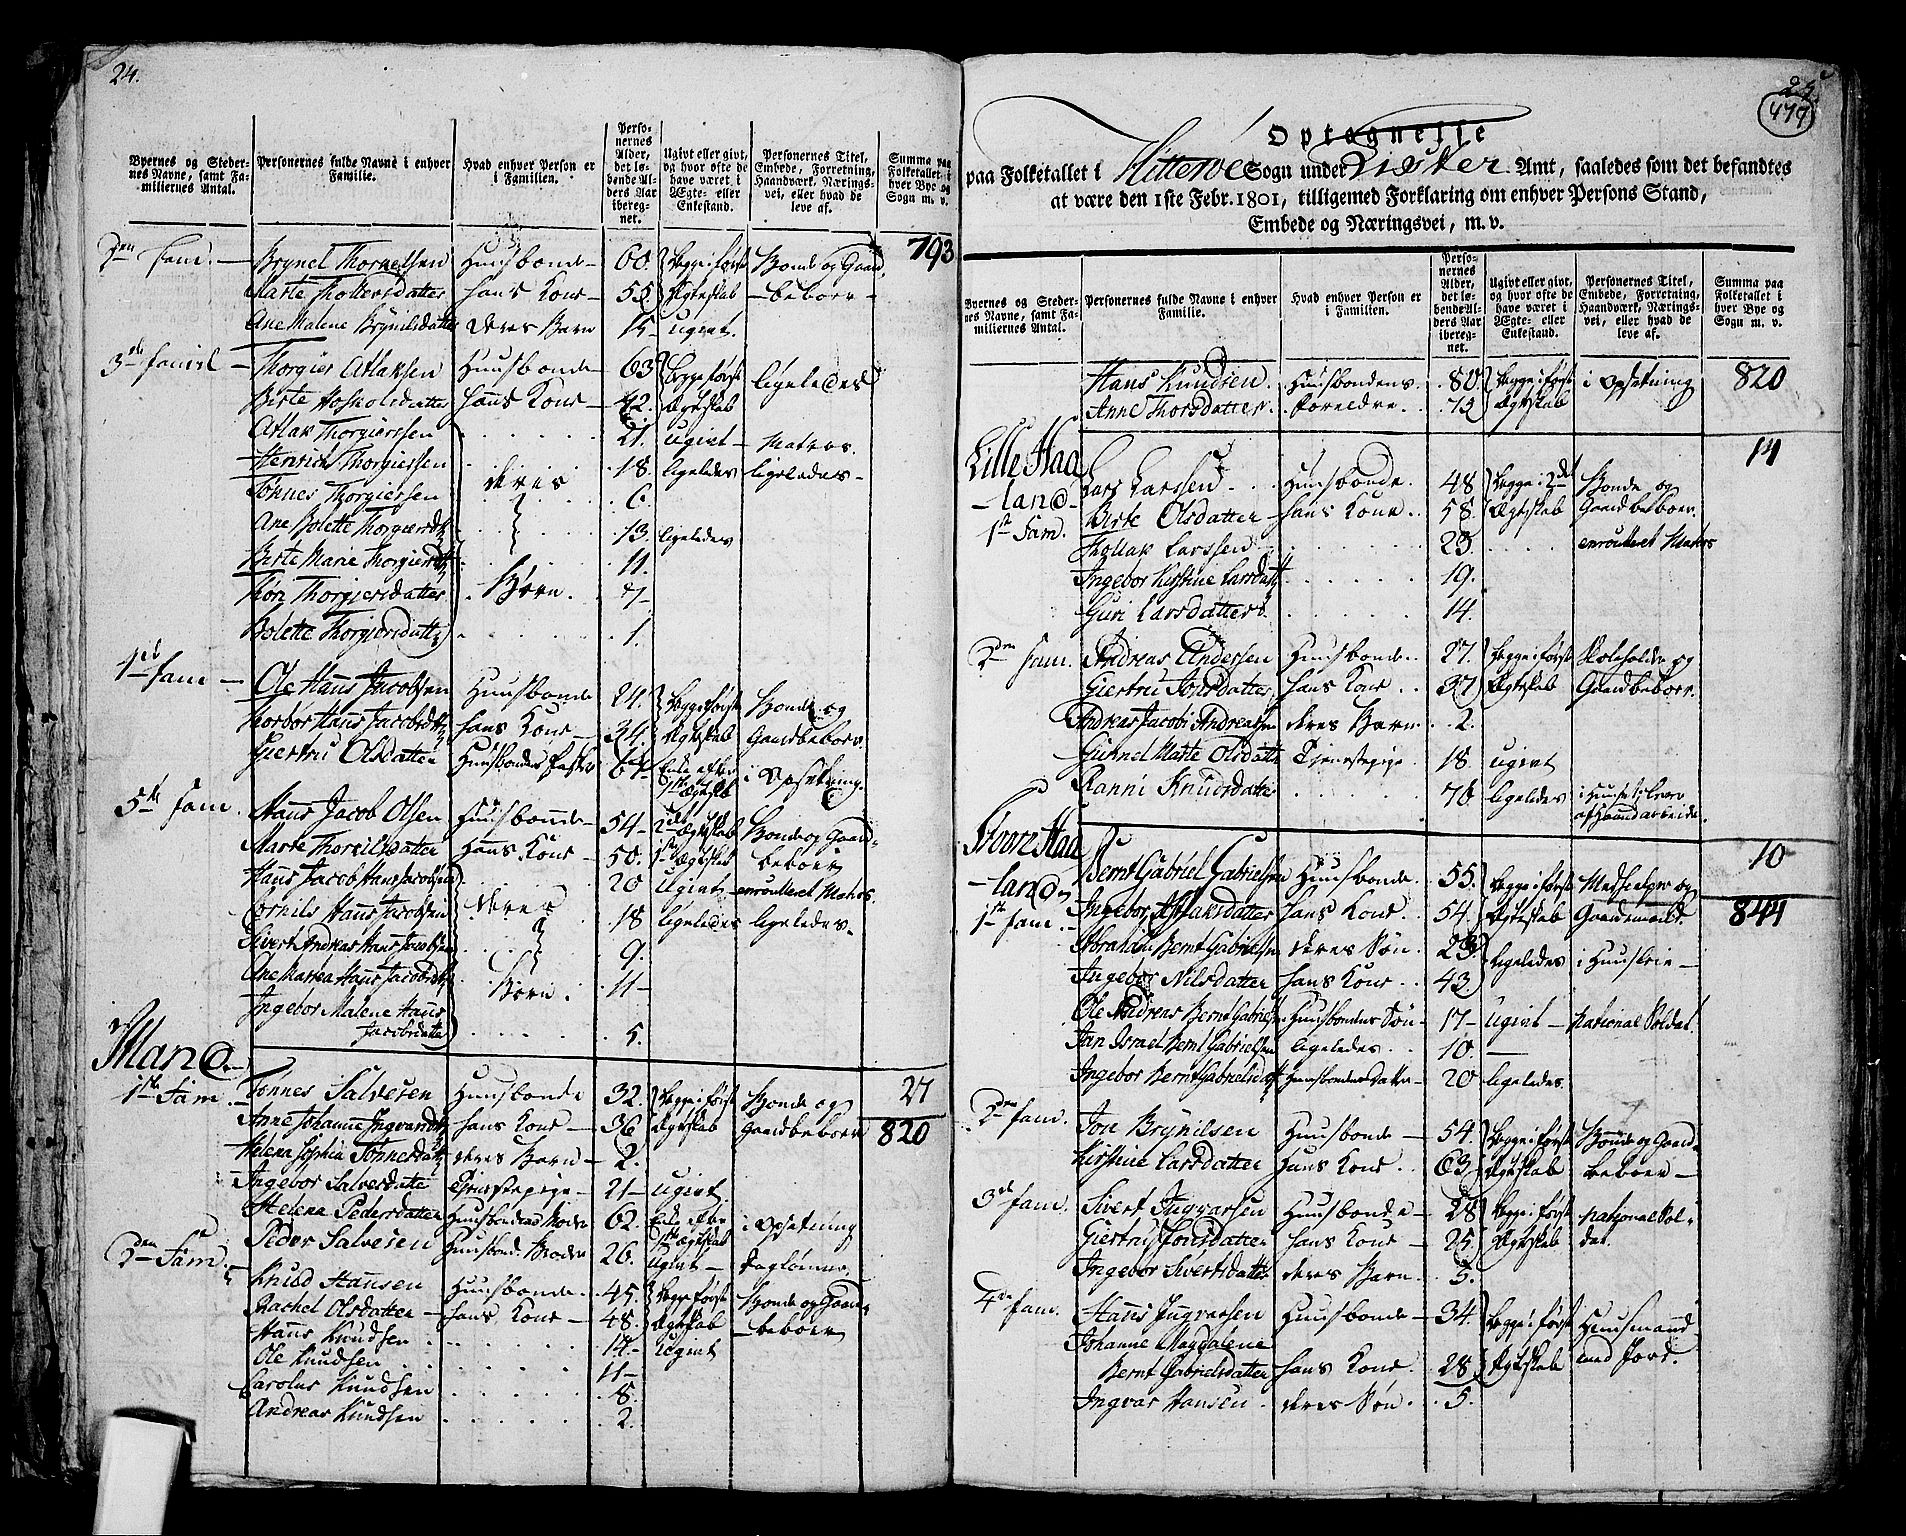 24.
Byernes og Steder-
nes Navne, samt Fa-
miliernes Antal.
Personernes fulde Navne i enhver
Familie.
Hvad enhver Person er
i Familien.
Perso-
nernes
Alder,
det lø-
bende Al-
ders Aar
ibereg-
net.
Ugivt eller givt,
og hvor ofte de
have været i
Ægte- eller
Enkestand.
Personernes Titel,
Embede, Forretning,
Haandværk, Nærings-
vei, eller hvad de
leve af.
Summa paa
Folketallet i
hver Bye og
Sogn m. v.
793
2den Fam. Brynel Thorkelsen Huusbonde 60. Begge i først Bonde og Gaard
Marte Tollevsdatter hans Kone 55. Ægteskab beboer
Ane Malene Brynilsdatter deres Barn 15 ugivt
3de Famil Thorgier Atlaksen Huusbonde 63 Begge først ligeledes
Birte Hoskolsdatter hans Kone 42. Ægteskab
Atlak Thorgiersen 21. ugivt Matros
Henrich Thorgiersen deres 18. ligeledes ligeledes
Tønnes Thorgiersen 6.
Ane Bolette Thorgiersdtr 13. ligeledes
Birte Marie Thorgiersdtr 11.
Thore Thorgiersdatter Børn. 7
Bolette Thorgiersdattr 1.
4de Fam Ole Hans Jacobsen Huusbonde 24. Begge først Bonde og
Thorbor Hans Jacobsdtr hans Kone 34. Ægteskab Gaardbeboer.
Giertru Olsdatter Huusbondes Faster 67. Enke efter 1ste Ægteskb i Opsætning
5te Fam. Hans Jacob Olsen Huusbonde 54 2det Ægteskab Bonde og Gaard
Marte Thorkilsdatter Hans Kone 50. 1ste Ægteskb beboer
Hans Jacob Hans Jacobsen 20 Ugivt enroulleret Matros.
Cornils Hans Jacobsen deres 18 ligeledes ligeledes.
Sivert Andreas Hans Jacobsen 9.
Ane Martea Hans Jacobsdtr 11
Ingebor Malene Hans Børn.
Jacobsdatter 5.
Mand 27
1ste Fam. Tønnes Salvesen Huusbonde 32. Begge i først Bonde og
Anne Johanne Ingvarsdtr hans Kone 36 Ægteskab Gaardbeboer 820
Helena Sophia Tønnesdatr deres Barn 2.
Ingebor Salvesdatter Tjenistepige 21 ugivt.
Helena Pedersdatter Huusbondens Moder 62. Enke efter 1ste Ægteskb i Opsætning
Peder Salvesen Huusbond. Broder 26. ugivt Daglønner
2den Fam. Knud Hansen Huusbonde 45. Begge først Bonde og Gaard
Rachel Olsdatter hans Kone 48. Ægteskab beboer
Hans Knudsen 14 Ugivt
Ole Knudsen 11
Carolus Knudsen 8.
Andreas Knudsen 2.
25.
479
Optegnelse
paa Folketallet i Hitterøe Sogn under Lister Amt, saaledes som det befandtes
at være den 1ste Febr. 1801, tilligemed Forklaring om enhver Persons Stand,
Embede og Næringsvei, m. v.
Byernes og Steder-
nes Navne, samt Fa-
miliernes Antal.
Personernes fulde Navne i enhver
Familie.
Hvad enhver Person er
i Familien.
Perso-
nernes
Alder,
det lø-
bende Al-
ders Aar
ibereg-
net.
Ugivt eller givt,
og hvor ofte de
have været i
Ægte- eller
Enkestand.
Personernes Titel,
Embede, Forretning,
Haandværk, Nærings-
vei, eller hvad de
leve af.
Summa paa
Folketallet i
hver Bye og
Sogn m. v.
Hans Knudsen. Huusbondens 80 Begge i først i Opsætning 820
Anne Thorsdatter. Foreldre. 73 Ægteskab
Lille Haa 14
Lars Larssen Huusbonde. 48 Begge i 2det Bonde og
land
Birte Olsdatter hans Kone 58 Ægteskab Gaardbeboer.
1ste Fam.
Thollak Larssen 23. enroulleret Matros
Ingebor Kirstine Larsdatr 19.
Guri Larsdatter 14.
2den Fam. Andreas Andersen Huusbonde 27. Begge i først Skoleholder og
Giertru Jonsdatter hans Kone 37 Ægteskab Gaardbeboer.
Andreas Jacobi Andreassen deres Barn 2.
Gunnel Marte Olsdattr Tjenestepige 18. ugivt
Ranni Knudsdatter 76. ligeledes i Huuset lever
af Haandarbeide.
Store Haa 10
Bernt Gabriel Gabrielsen Huusbonde. 55. Begge i først Medhielper og
land
1ste Fam. Ingebor Aslaksdatter hans Kone. 54. Ægteskab Gaardmand. 844
Abraham Bernt Gabrielsen deres Søn 23. ligeledes i Huusleie
Ingebor Nilsdatter hans Kone 43.
Ole Andreas Bernt Gabrielsen Huusbondens Søn 17 ugivt National Soldat.
Jan Israel Bernt Gabrielsen ligeledes 10.
Ingebor Bernt Gabrielsdatr Huusbondens Datter 20 ligeledes.
2den Fam. Jon Brynilsen Huusbonde 54. Begge i først Bonde og Gaard
Kirstine Larsdatter Hans Kone. 63. Ægteskab beboer
3de Fam. Sivert Ingvarsen Huusbonde 28 Begge i først national Sol
Giertru Jonsdatter hans Kone 25. Ægteskab dat.
Ingebor Sivertsdatter deres Barn 5.
4de Fam. Hans Ingvarsen Huusbonde 34. Begge i først Huusmand
Johanne Magdalene
Bernt Gabrielsdatter hans Kone 28. Ægteskab med Jord.
Ingvar Hansen. deres Søn. 5.